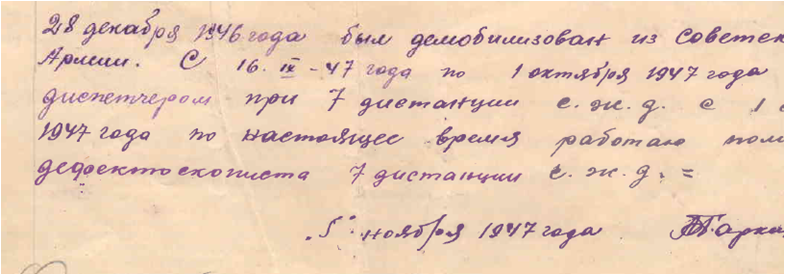 28 декабря 1946 года был демобилизован из Советск
Армии. С 16. IX - 47 года по 1 октября 1947 года
диспетчером при 7 дистанции с. ж. д. с 1
1947 года по настоящее время работаю пом
дефектоскописта 7 дистанции с. ж. д. =
"5" ноября 1947 года